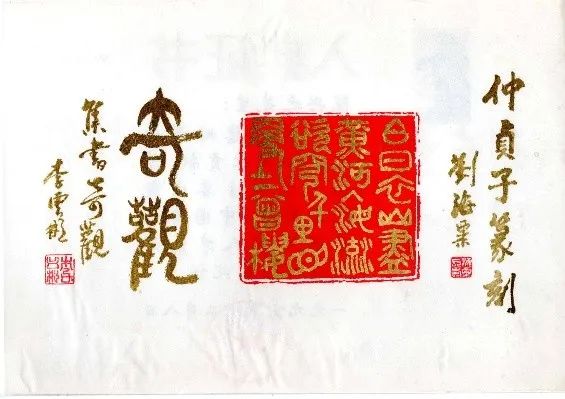 仲貞子篆刻
劉海粟
白日依山盡
黃河入海流
欲窮千里目
更上一層樓
奇觀
集書奇觀